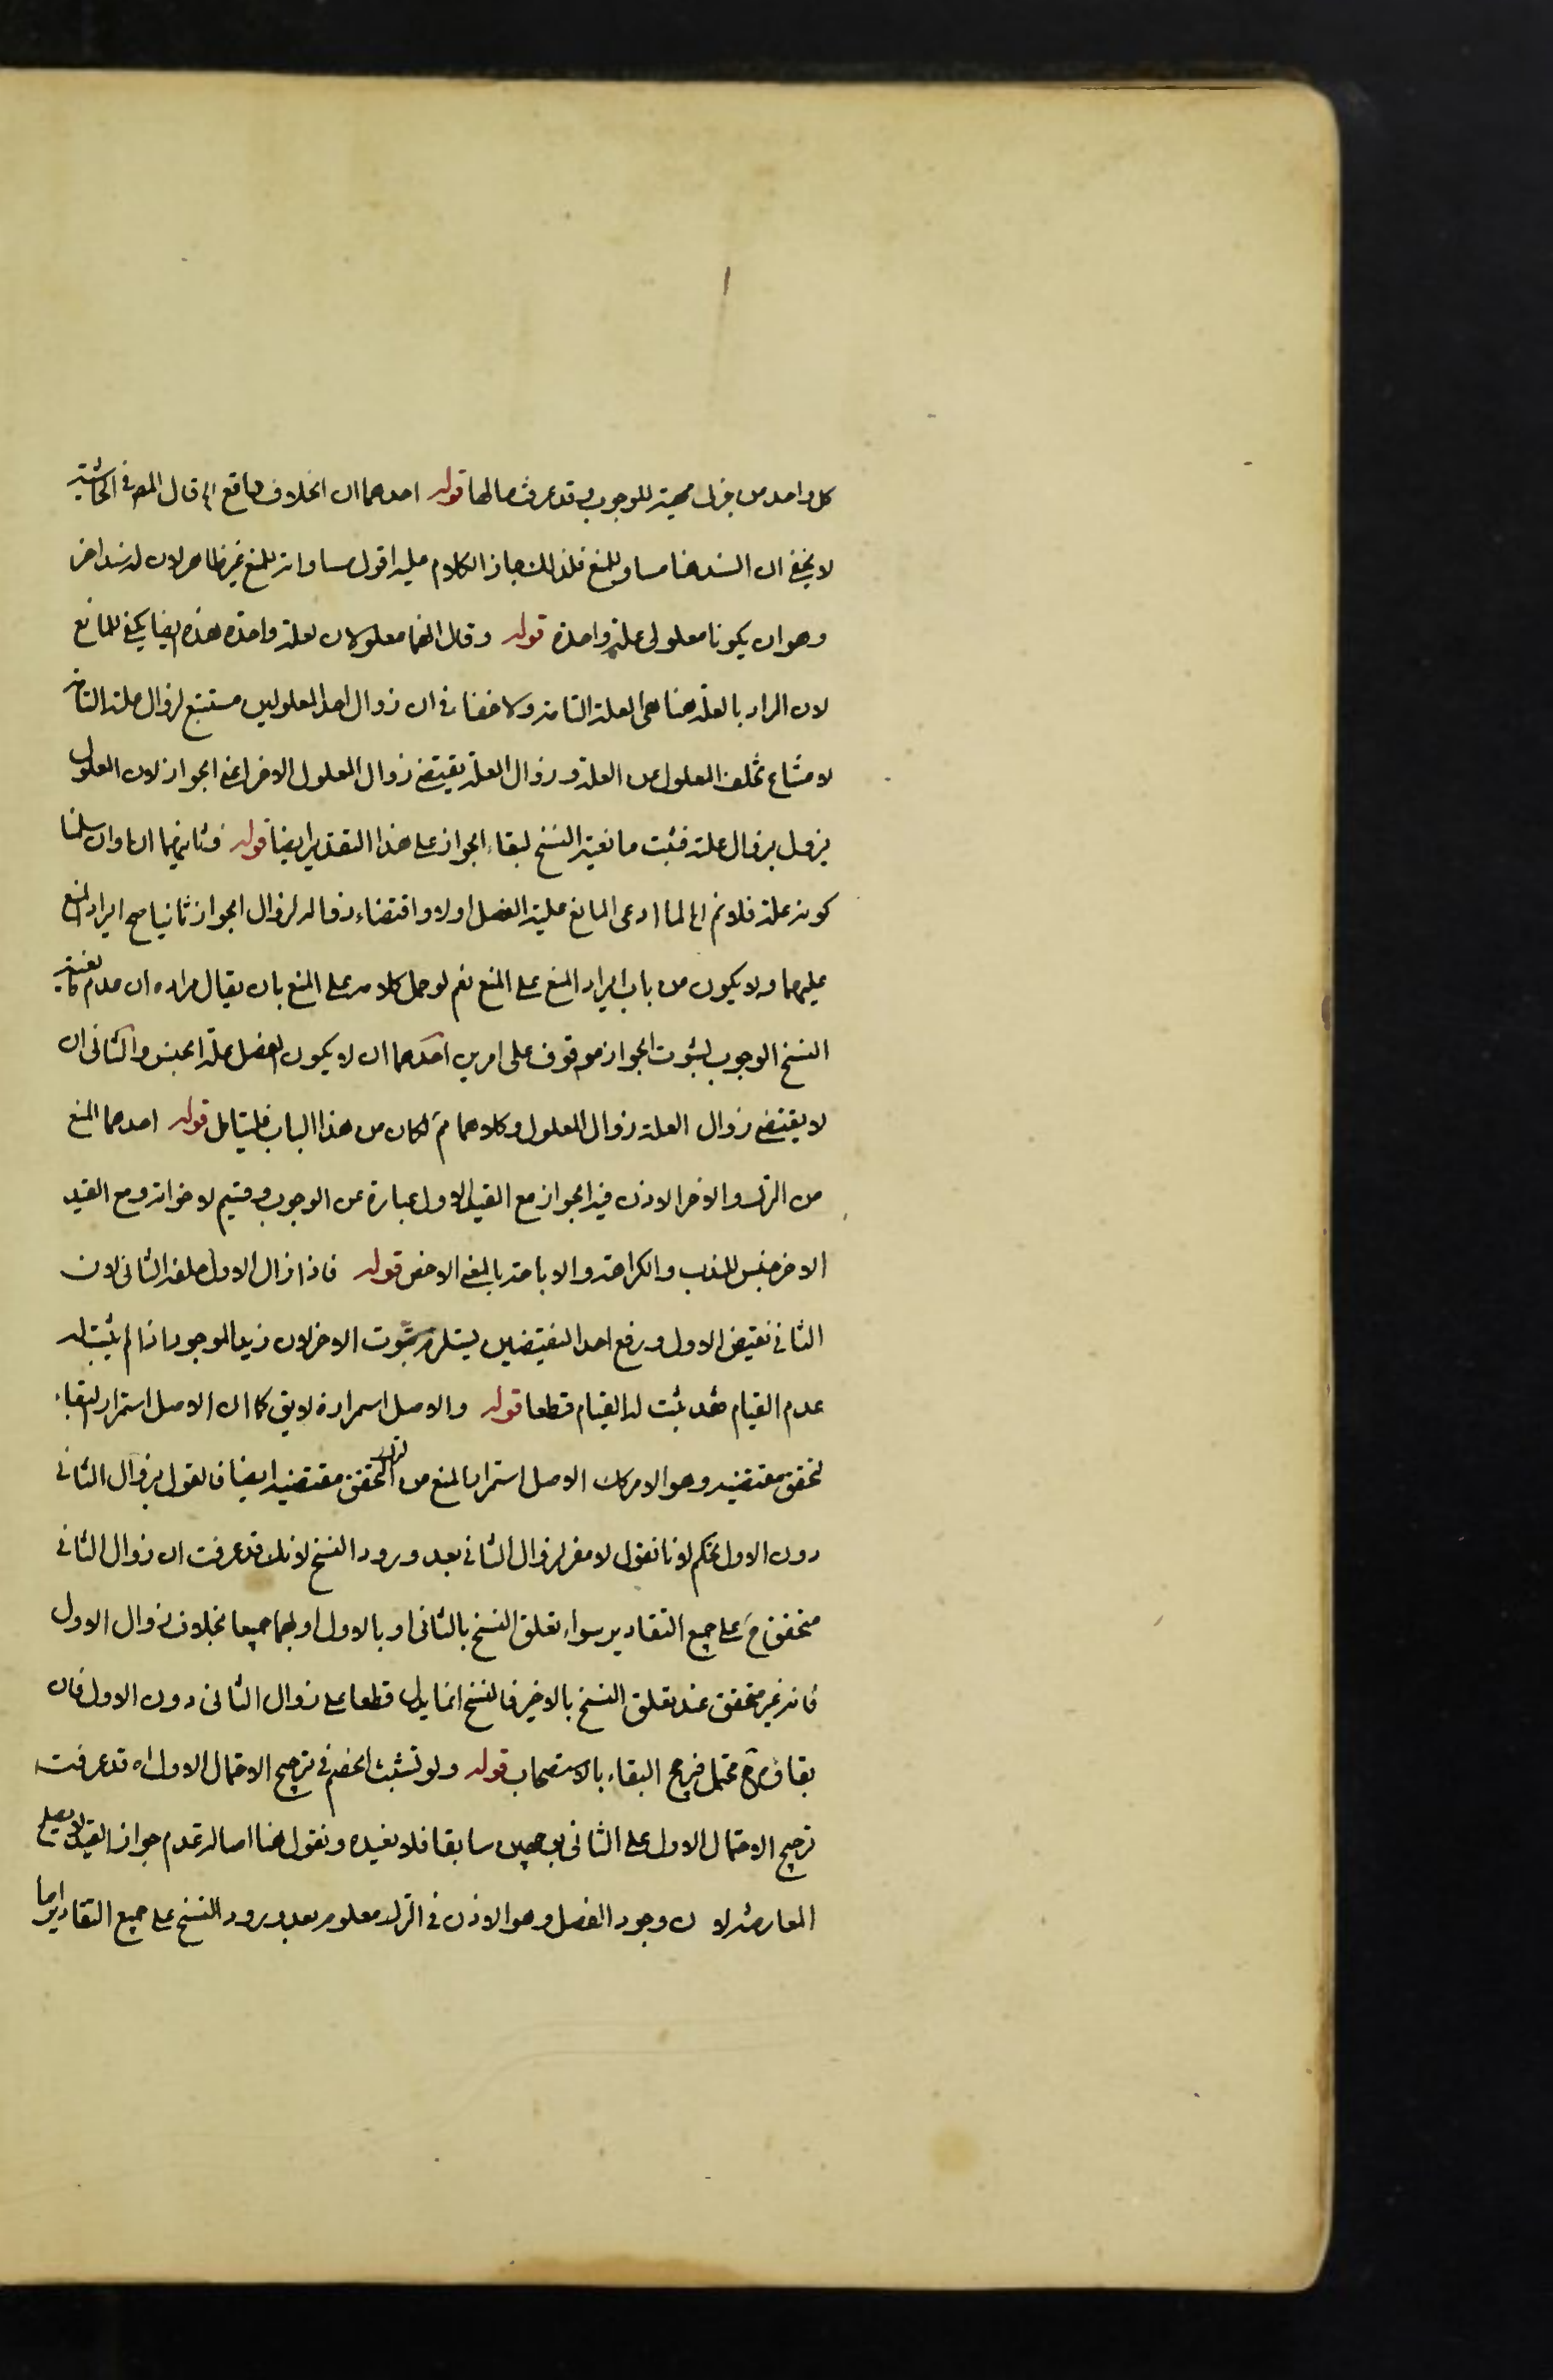 كل واحد من جزئى مهية للوجوب وقد عرفت مالها قوله احدهما ان الخلاف واقع اه قال المص فى الحاشية
لا يخفى ان السند هنا مساو للمنع فلذلك جاز الكلام عليه اقول مساواته للمنع غير ظاهر لان له سندا اخر
وهو ان يكونا معلولى علة واحدة قوله وقال انهما معلولان لعلة واحدة هذه ايضا يكفى للمانع
لان المراد بالعلة هنا هى العلة التامة ولا خفاء فى ان زوال احد المعلولين مستتبع لزوال علته التامة
لامتناع تخلف المعلول عن العلة وزوال العلة يقتضى زوال المعلول الاخر اعنى الجواز لان المعلول
يزول بزوال علته فثبت مانعية النسخ لبقاء الجواز على هذا التقدير ايضا قوله وثانيهما انا وان سلمنا
كونه علة فلانم اه لما ادعى المانع علية الفصل اولا واقتضاء زواله لزوال الجواز ثانيا صح ايراد المنع
عليهما ولا يكون من باب ايراد المنع على المنع نعم لو حمل كلامه على المنع بان يقال مراده ان عدم مانعية
النسخ الوجوب لثبوت الجواز موقوف على امرين احدهما ان لا يكون الفصل علة الجنس والثانى ان
لا يقتضى زوال العلة زوال المعلول وكلاهما مم لكان من هذا الباب فليتامل قوله احدهما المنع
من الترك والاخر الاذن فيه الجواز مع القيد الاول عبارة عن الوجوب وقسيم لاخواته ومع القيد
الاخر جنس للندب والكراهة والاباحة بالمعنى الاخص قوله فاذا زال الاول خلفه الثانى لان
الثانى نقيض الاول ورفع احد النقيضين يستلزم ثبوت الاخر لان زيدا الموجود اذا لم يثبت له
عدم القيام فقد ثبت له القيام قطعا قوله والاصل استمراره لا يق كما ان الاصل استمرار البقاء
لتحقق مقتضيه وهو الامر كان الاصل استمرار المنع من الترك لتحقق مقتضيه ايضا فالقول بزوال الثانى
دون الاول تحكم لانا نقول لا مفر لزوال الثانى بعد ورود النسخ لانك قد عرفت ان زوال الثانى
متحقق ح على جميع التقادير سواء تعلق النسخ بالثانى او بالاول او بهما جميعا بخلاف زوال الاول
فانه غير متحقق عند تعلق النسخ بالاخير فالنسخ انما يدل قطعا على زوال الثانى دون الاول فان
بقاؤه ح محتمل فيرجح البقاء بالاستصحاب قوله ولو تشبث الخصم فى ترجيح الاحتمال الاول اه قد عرفت
ترجيح الاحتمال الاول على الثانى بوجهين سابقا فلا نعيده ونقول هنا اصالة عدم جواز القيد لا يصلح
المعارضة لان وجود الفصل وهو الاذن فى الترك معلوم بعد ورود النسخ على جميع التقادير اما